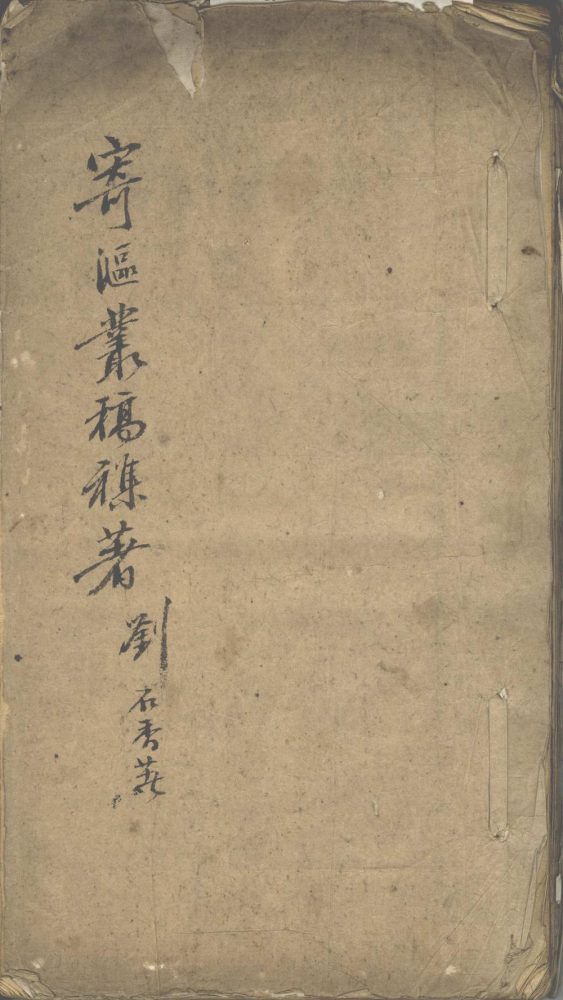 寄漚叢稿襍著
劉石香